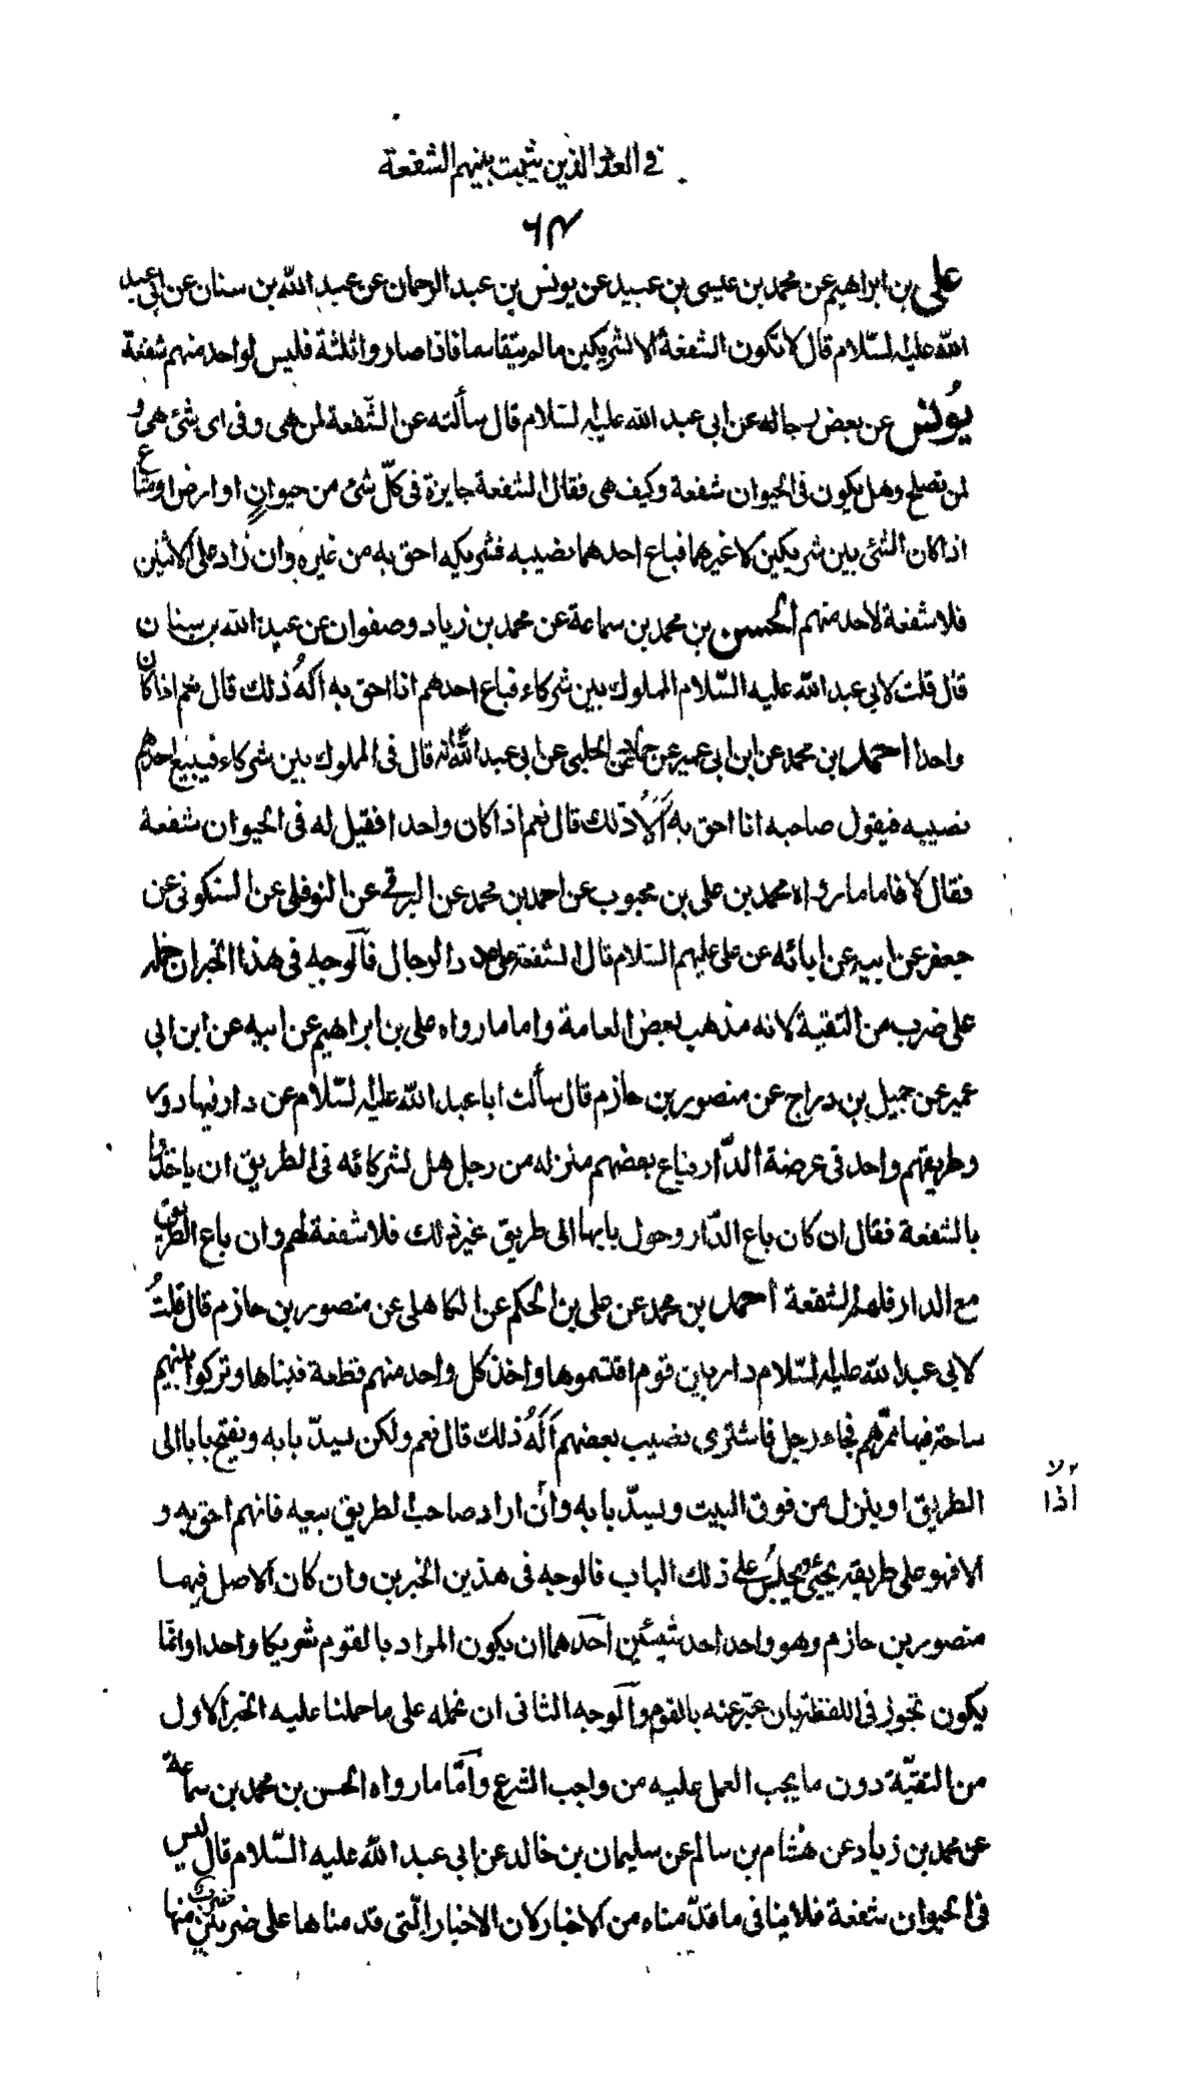 في العدد الذين يثبت بينهم الشفعة
علي بن ابراهيم عن محمد بن عيسى بن عبيد عن يونس بن عبد الرحمان عن عبد الله بن سنان عن ابي عبد
الله عليه السّلام قال لا تكون الشفعة الا لشريكين ما لم يتقاسما فاذا صاروا ثلثة فليس لواحد منهم شفعة
يُونس عن بعض رجاله عن ابى عبد الله عليه السلام قال سألته عن الشّفعة لمن هى وفى اى شئ هى و
لمن تصلح وهل يكون فى الحيوان شفعة وكيف هى فقال الشفعة جايزة فى كلّ شئ من حيوانٍ او ارض او متاع
اذا كان الشئ بين شريكين لا غيرهما فباع احدهما نصيبه فشريكه احق به من غيره وان زاد على الاثنين
فلا شفعة لاحد منهم الحسن بن محمد بن سماعة عن محمد بن زياد وصفوان عن عبد الله بن سنان
قال قلت لابي عبد الله عليه السّلام المملوك بين شركاء فباع احدهم انا احق به أله ذلك قال نعم اذا كان
واحدا احمد بن محمد عن ابن ابى عمير عن حماد عن الحلبى عن ابى عبد الله انه قال فى المملوك بين شركاء فيبيع احدهم
نصيبه فيقول صاحبه انا احق به أله ذلك قال نعم اذا كان واحدا فقيل له فى الحيوان شفعة
فقال لا فاما ما رواه محمد بن على بن محبوب عن احمد بن محمد عن البرقى عن النوفلى عن السكونى عن
جعفر عن ابيه عن ابائه عن على عليهم السّلام قال الشفعة على عدد الرجال فالوجه فى هذا الخبر ان نحمله
على ضرب من التقية لانه مذهب بعض العامة واما ما رواه على بن ابراهيم عن ابيه عن ابن ابى
عمير عن جميل بن دراج عن منصور بن حازم قال سألت ابا عبد الله عليه السّلام عن دار فيها دور
وطريقهم واحد فى عرصة الدّار فباع بعضهم منزله من رجل هل لشركائه فى الطريق ان ياخذوا
بالشفعة فقال ان كان باع الدّار وحول بابها الى طريق غير ذلك فلا شفعة لهم وان باع الطريق
مع الدار فلهم الشفعة احمد بن محمد عن على بن الحكم عن الكاهلى عن منصور بن حازم قال قلتُ
لابى عبد الله عليه السّلام دار بين قوم اقتسموها واخذ كل واحد منهم قطعة فبناها وتركوا بينهم
ساحة فيها ممرّهم فجاء رجل فاشترى نصيب بعضهم أله ذلك قال نعم ولكن يسدّ بابه ويفتح بابا الى
الطريق او ينزل من فوق البيت ويسدّ بابه وان اراد صاحب الطريق بيعه فانهم احق به و
الا فهو على طريقه يجئ ويجلس على ذلك الباب فالوجه فى هذين الخبرين وان كان الاصل فيهما
منصور بن حازم وهو واحد احد شيئين احدهما ان يكون المراد بالقوم شريكا واحدا وانّما
يكون تجوز فى اللفظة بان عبّر عنه بالقوم والوجه الثانى ان نحمله على ما حملنا عليه الخبر الاول
من التقيّة دون ما يجب العمل عليه من واجب الشرع وامّا ما رواه الحسن بن محمد بن سماعة
عن محمد بن زياد عن هشام بن سالم عن سليمان بن خالد عن ابى عبد الله عليه السّلام قال ليس
فى الحيوان شفعة فلا ينافى ما قدّمناه من الاخبار لان الاخبار الّتى قدمناها على ضربين منها